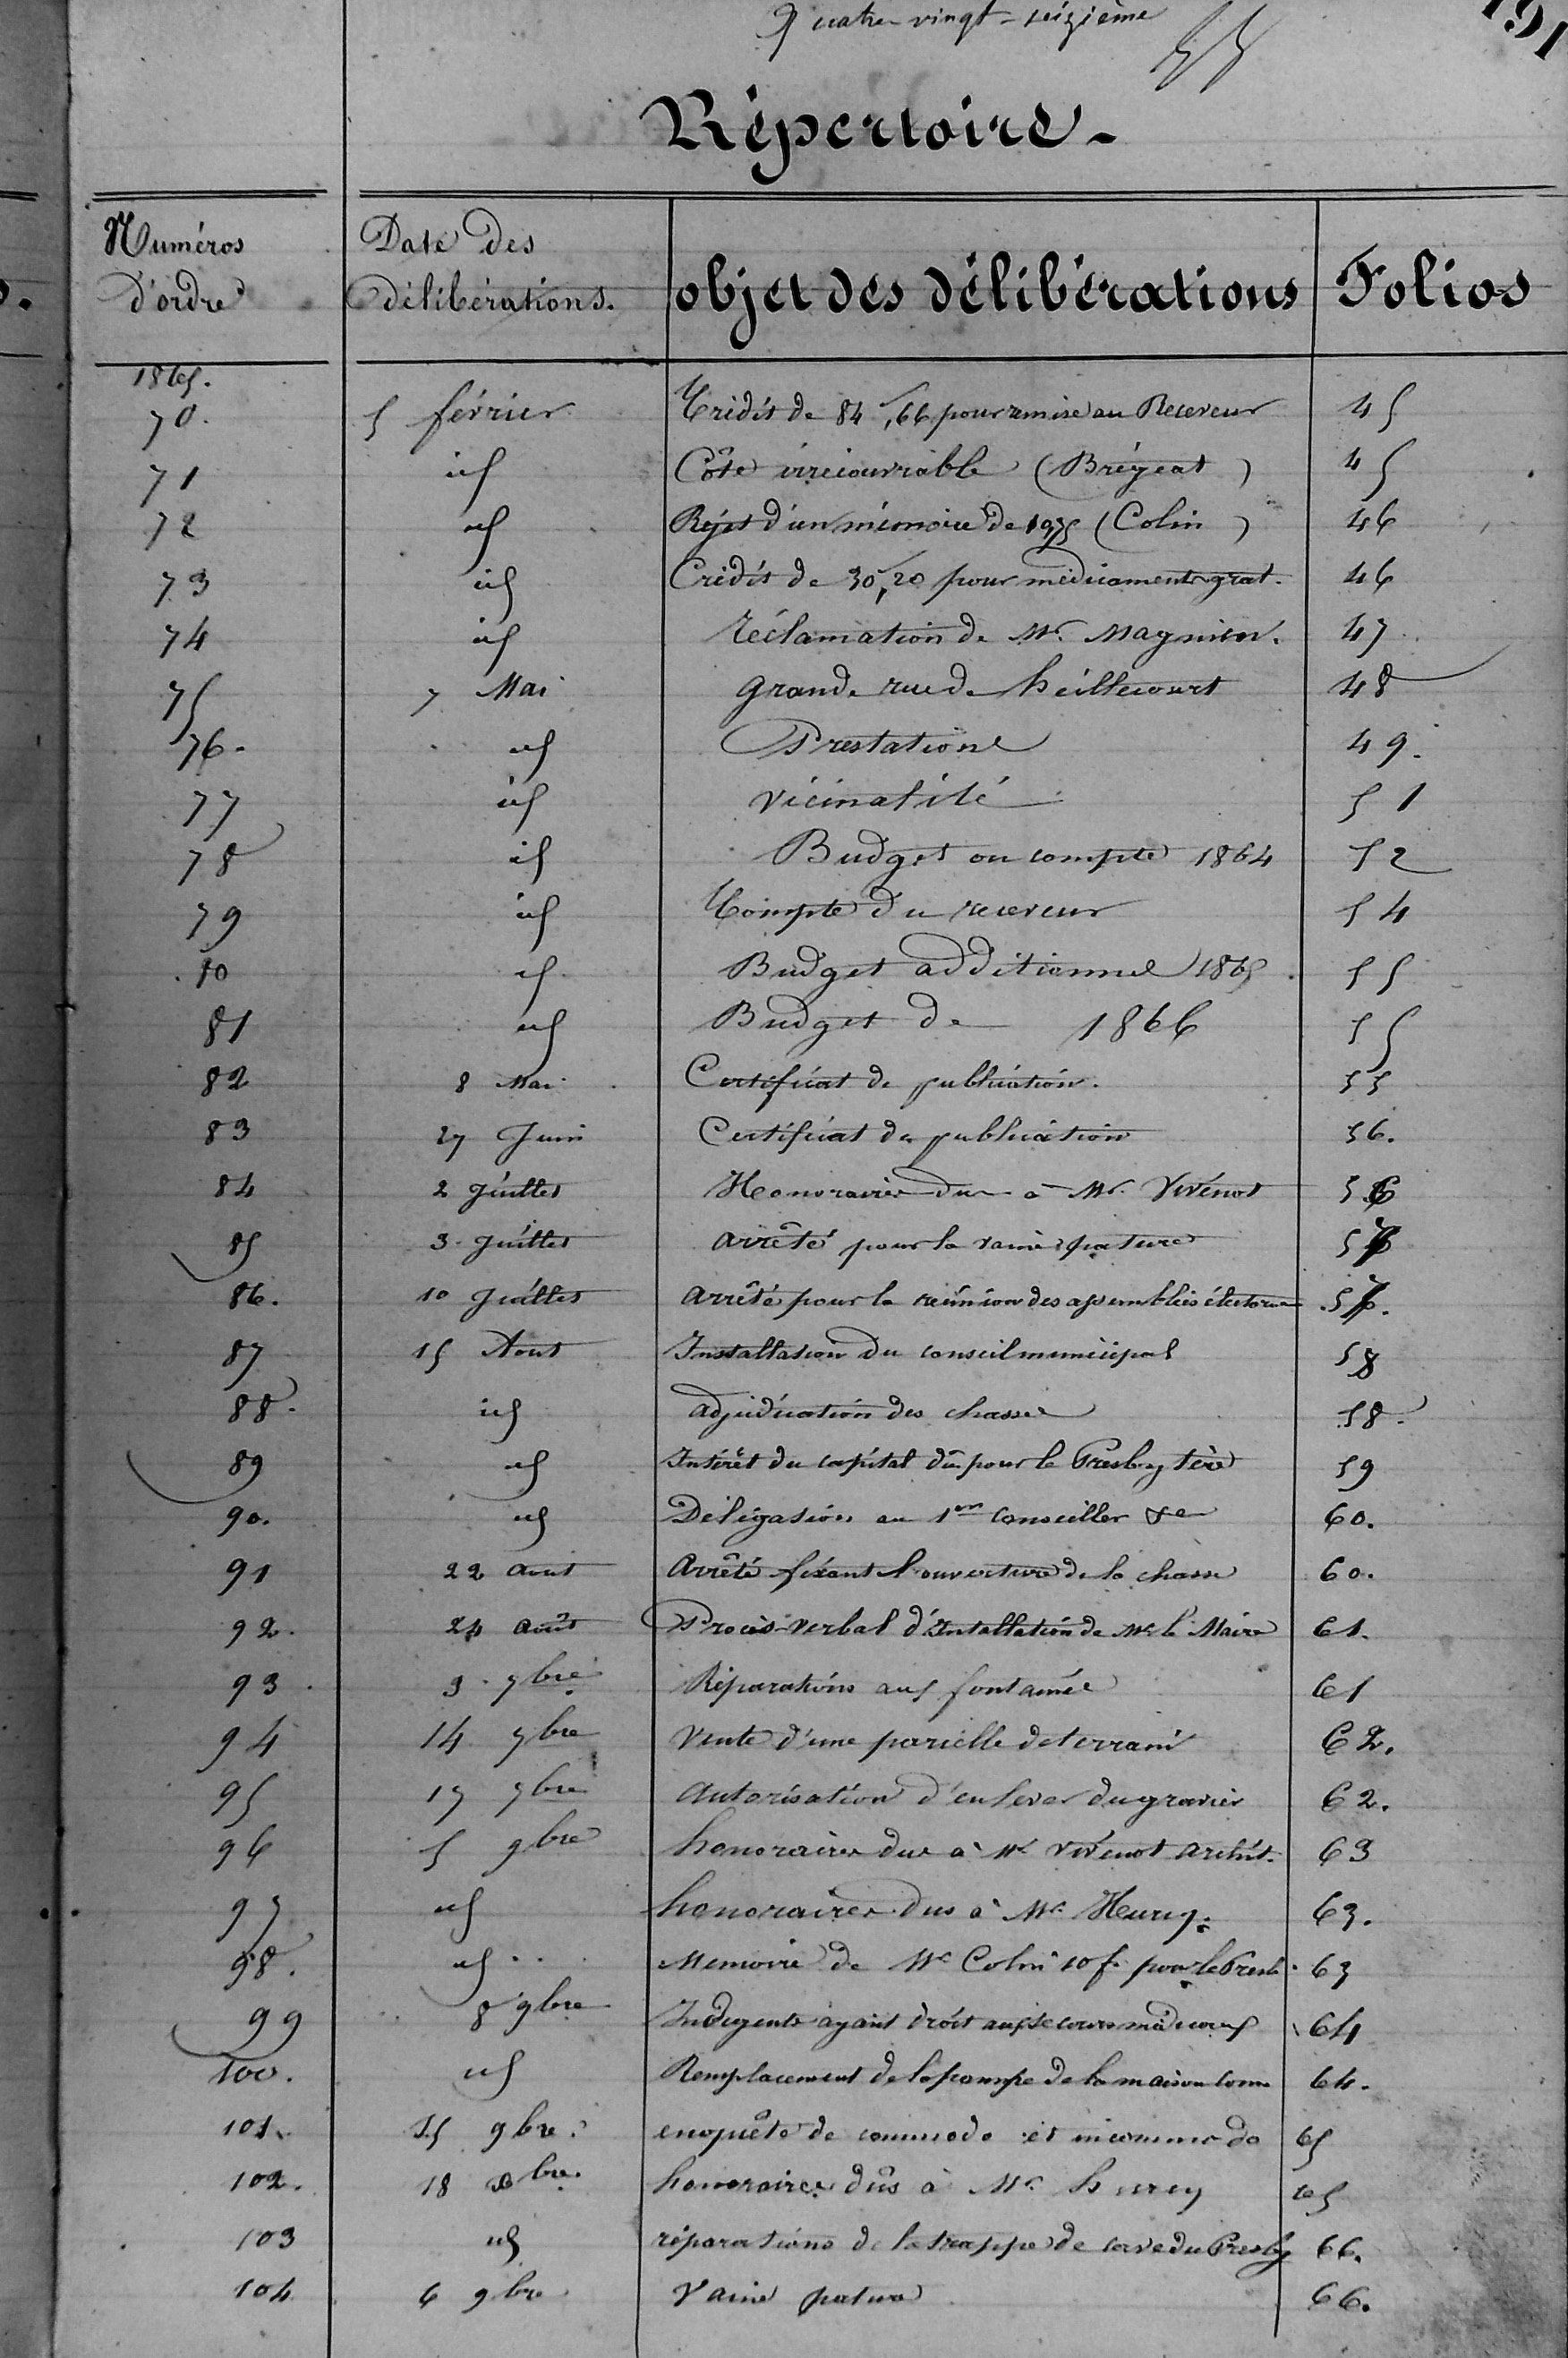 Quatre-vingt-seizième
191
Répertoire-
Numéros d'ordre | Date des délibérations. | objet des délibérations | Folios
1865.
70. 5 février Crédit de 84f,66 pour remise au Receveur 45
71 id Côte irrécouvrable (Brégeat) 45
72 id Rejet d'un mémoire de (Colin) 46
73 id Crédit de 30f,20 pour médicaments grat. 46
74 id réclamation de Mr. Magnier. 47
75 7 Mai grande rue de heillecourt 48
76. id Prestations 49.
77 id vicinalité 51
78 id Budget ou compte 1864 52
79 id Compte du receveur 54
80 id Budget additionnel 1865. 55
81 id Budget de 1866 55
82 8 Mai Certificat de publication. 55
83 27 Juin Certificat de publication 56.
84 2 Juillet Honoraires dus à Mr. Vivenot 56
85 3 Juillet arrêté pour la vaine pature 57
86. 10 Juillet arrêté pour la réunion des assemblées électorales 57.
87 15 Aout Installation du conseil municipal 58
88. id adjudication des chasses 58.
89 id Intérêt du capital dû pour le Presbytère 59
90. id Délégation au 1er conseiller &a 60.
91 22 aout Arrêté fixant l'ouverture de la chasse 60.
92. 24 août Procès-verbal d'Intallation de Mr le Maire 61.
93. 3 7bre Réparations aux fontaines 61
94 14 7bre Vente d'une parcelle de terrain 62.
95 17 7bre Autorisation d'enlever du gravier 62.
96 5 9bre honoraires dus à Mr Vivenot archit. 63
97 id honoraires dus à Mr. Henry. 63.
98. id Memoire de Mr Colin 10 f. pour le Presb. 63
99 8 9bre Indigents ayant droit aux secours médicaux 64
100. id Remplacement de la pompe de la maison com 64.
101. 15 9bre. enquête de commodo et incommodo 65
102. 18 Xbre. honoraires dûs à Mr. henry 65
103 id réparations de la trappe de cave du Presby 66.
104 6 9bre Vaine pature 66.